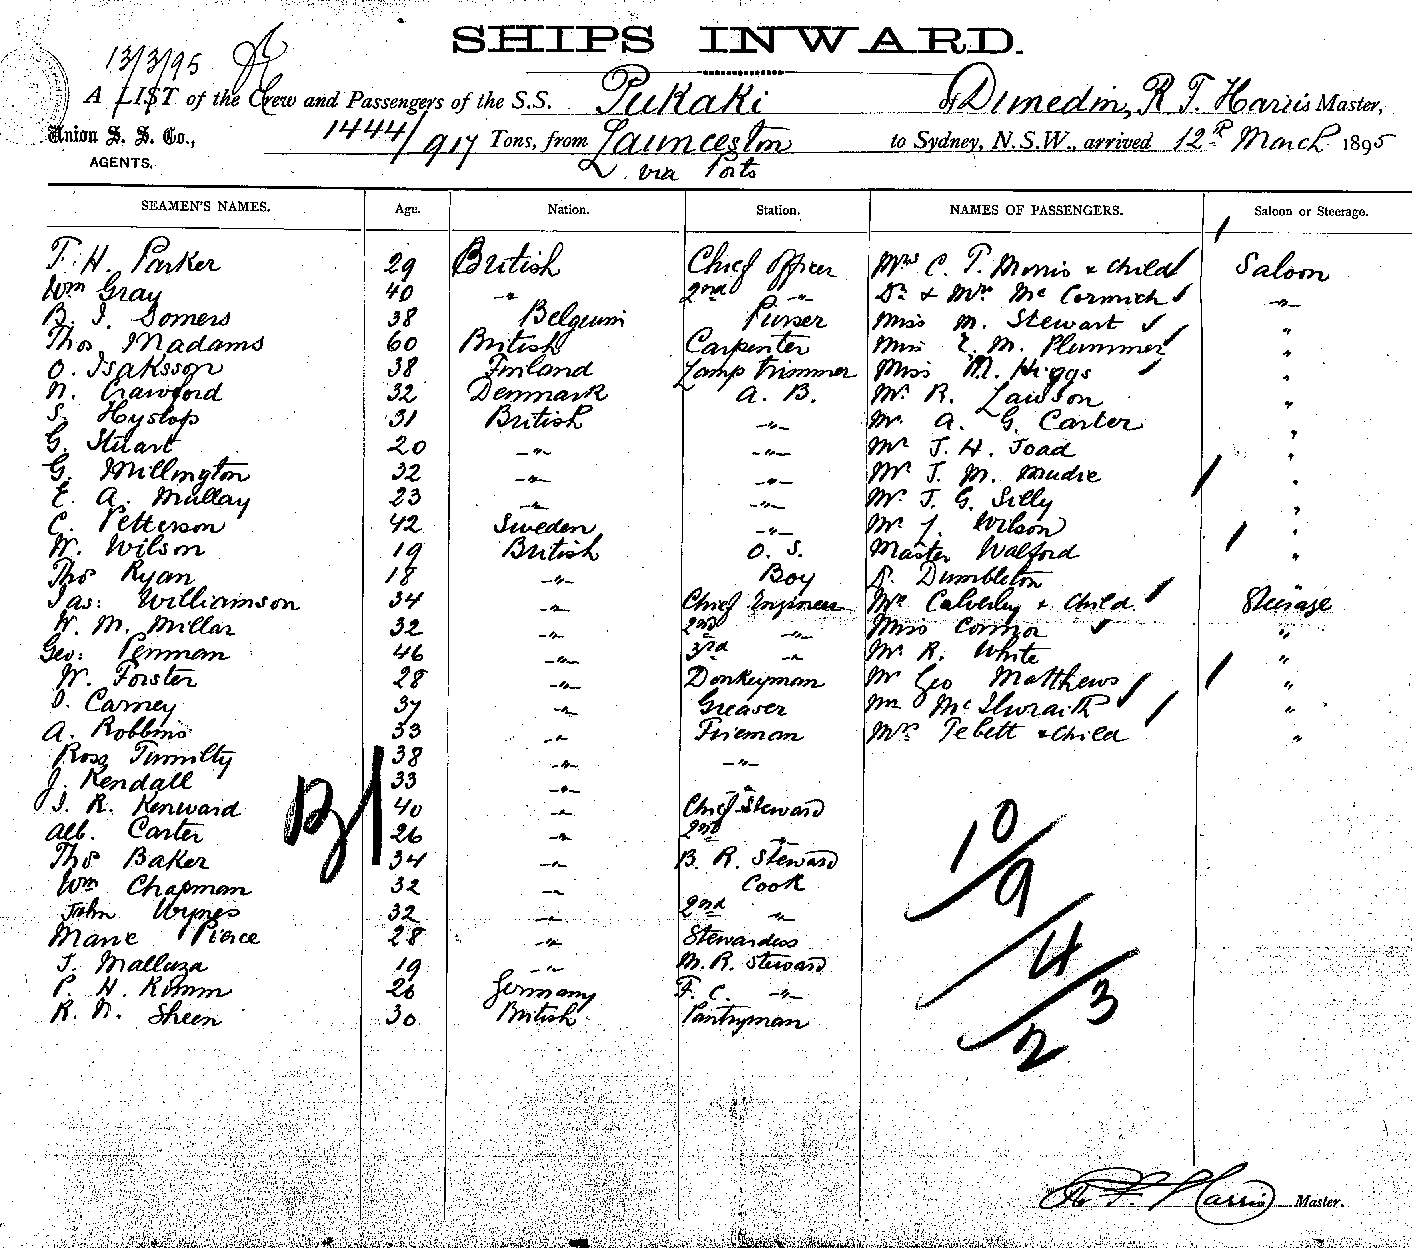 SHIPS INWARD.
13/3/95
A LIST of the Crew and Passengers of the S.S. Pukaki of Dunedin, R T. Harris Master,
Union S. S. Co.,
AGENTS.
1444/917 Tons, from Launceston to Sydney, N.S.W., arrived 12th March 1895
via Ports
SEAMEN'S NAMES. Age. Nation. Station. NAMES OF PASSENGERS. Saloon or Steerage.
T. H. Parker 29 British Chief Officer Mrs C. T. Morris & child Saloon
Wm Gray 40 " 2nd " Dr & Mrs McCormick "
B. J. Somers 38 Belgium Purser Miss M. Stewart "
Thos Madams 60 British Carpenter Miss E. M. Plummer "
O. Isaksson 38 Finland Lamp trimmer Miss M. Higgs "
N. Crawford 32 Denmark A. B. Mr R. Lawson "
S. Hyslop 31 British " Mr A. G. Carter "
G. Stuart 20 " " Mr J. H. Toad "
G. Millington 32 " " Mr J. M. Mudie "
E. A. Mallay 23 " " Mr J. G. Silly "
C. Petterson 42 Sweden " Mr J. Wilson "
W. Wilson 19 British O. S. Master Walford "
Thos Ryan 18 " Boy Dumbleton "
Jas: Williamson 34 " Chief Engineer Mr Calverley & Child Steerage
W. M. Millar 32 " 2nd " Miss Connor "
Geo: Penman 46 " 3rd " Mr R. White "
W. Forster 28 " Donkeyman Mr Geo Matthews "
J. Carney 37 " Greaser Mr McIlwraith "
A. Robbins 33 " Fireman Mrs Tebett & child "
Ross Tumilty 38 " "
J. Kendall 33 " "
J. R. Kenward 40 " Chief Steward
Alb. Carter 26 " 2nd "
Thos Baker 34 " B. R. Steward
Wm Chapman 32 " Cook
John Wynes 32 " 2nd "
Marie Pierce 28 " Stewardess
J. Malluza 19 " M. R. Steward
P. H. Kimm 26 Germany F. C. "
R. N. Sheen 30 British Pantryman
B/
10/9/4/3/2
R T. Harris Master.